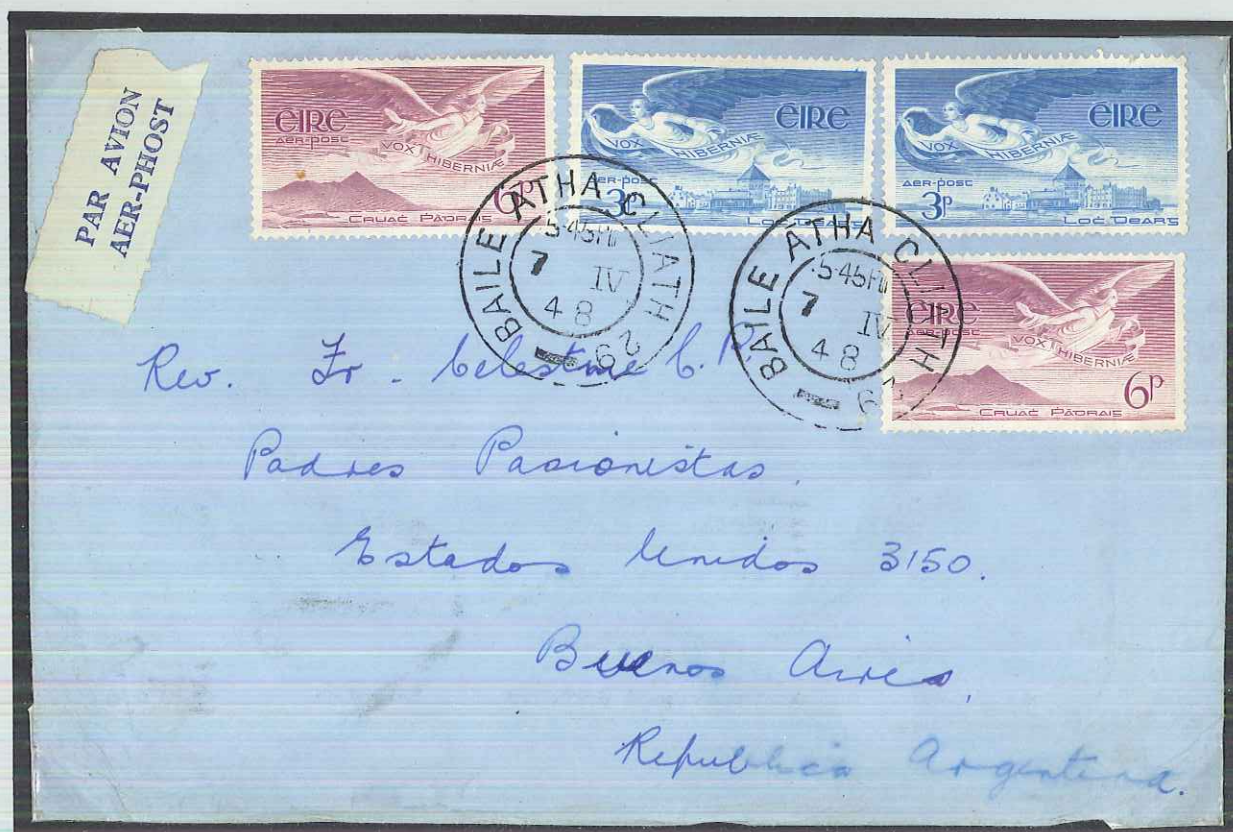 PAR AVION
AER-PHOST
EIRE
AER-POST
VOX HIBERNIÆ
6p
CRUAĊ PÁDRAIG
EIRE
VOX HIBERNIÆ
AER-POST
3p
EIRE
VOX HIBERNIÆ
AER-POST
3p
LOĊ DEARG
BAILE ÁTHA CLIATH
5.45PM
7 IV
48
29
BAILE ÁTHA CLIATH
5.45PM
7 IV
48
29
EIRE
AER-POST
VOX HIBERNIÆ
6p
CRUAĊ PÁDRAIG
Rev. Fr. Celestine C.P.
Padres Pasionistas.
Estados Unidos 3150.
Buenos Aires,
Republica Argentina.